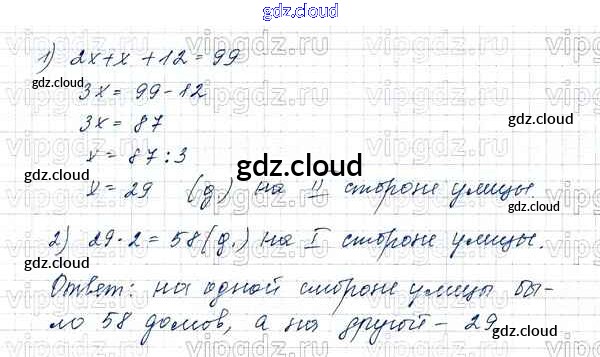 gdz.cloud
1) 2x+x+12=99
3x = 99-12
3x = 87
x = 87:3
x = 29 (д.) на II стороне улицы
2) 29·2=58(д.) на I стороне улицы.
Ответ: на одной стороне улицы бы-
ло 58 домов, а на другой - 29.
gdz.cloud
gdz.cloud
gdz.cloud
gdz.cloud
gdz.cloud
gdz.cloud
gdz.cloud
gdz.cloud
vipgdz.ru
vipgdz.ru
vipgdz.ru